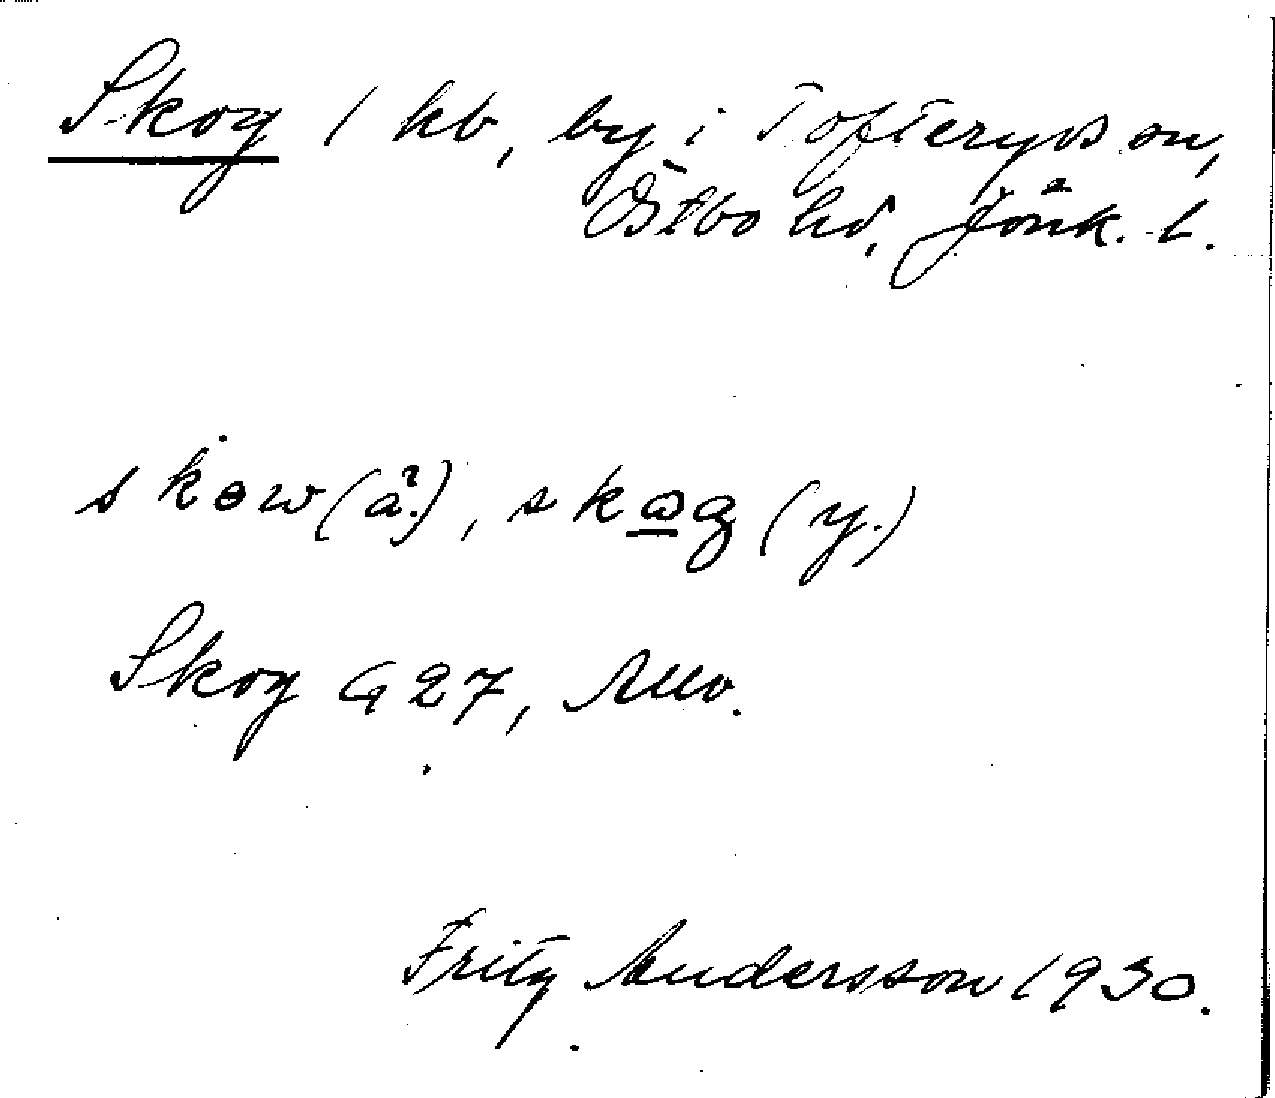 Skog 1 hb, by i Tofteryds sn,
Östbo hd, Jönk. L.
skɵw (ä.), skωg (y.)
Skog G 27,
Fritz Andersson 1930.